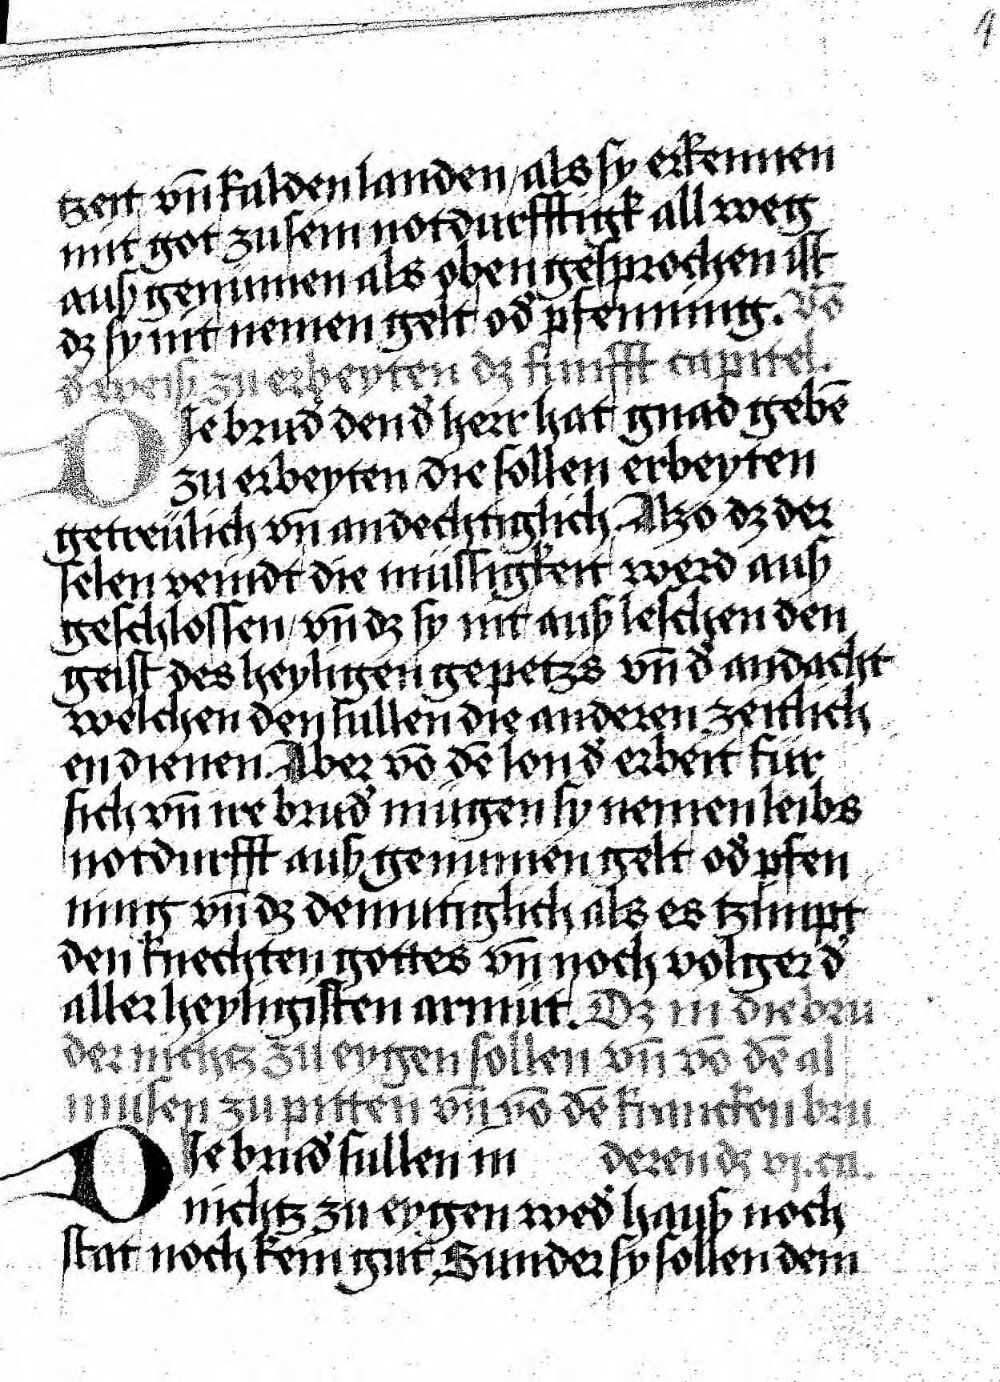 4
tzeit vn̄ kalden landen / als sy erkennen
mit got zu sein notdurfftigk all weg
auß genūmen als oben gesprochen ist
dz sy nit nemen gelt od̕ pfenning. Vō
d̕ weiß zu erbeyten dz funfft capitel.
DIe brud̕ den d̕ herr hat gnad gebē
zu erbeyten / die sollen erbeyten
getreülich vn̄ andechtiglich. Alzo dz der
selen veindt die müssigkeit werd auß
geschlossen / vn̄ dz sy nit auß leschen den
geist des heyligen gepetzs vn̄ d̕ andacht
welchen den sullen die anderen zeitlich
en dienen. Aber vō dē lon d̕ erbeit für
sich vn̄ ire brud̕ mügen sy nemen leibs
notdurfft auß genūmen gelt od̕ pfen
ning vn̄ dz demutiglich als es tzimpt
den knechten gottes vn̄ noch volger d̕
aller heyligisten armüt. Dz in die bru
der nichtz zu eygen sollen vn̄ vō dē al
musen zu pitten vn̄ vō dē krancken bru
DIe brud̕ sullen in deren dz vj. ca.
nichtz zu eygen wed̕ hauß noch
stat noch kein gut, Sunder sy sollen dem